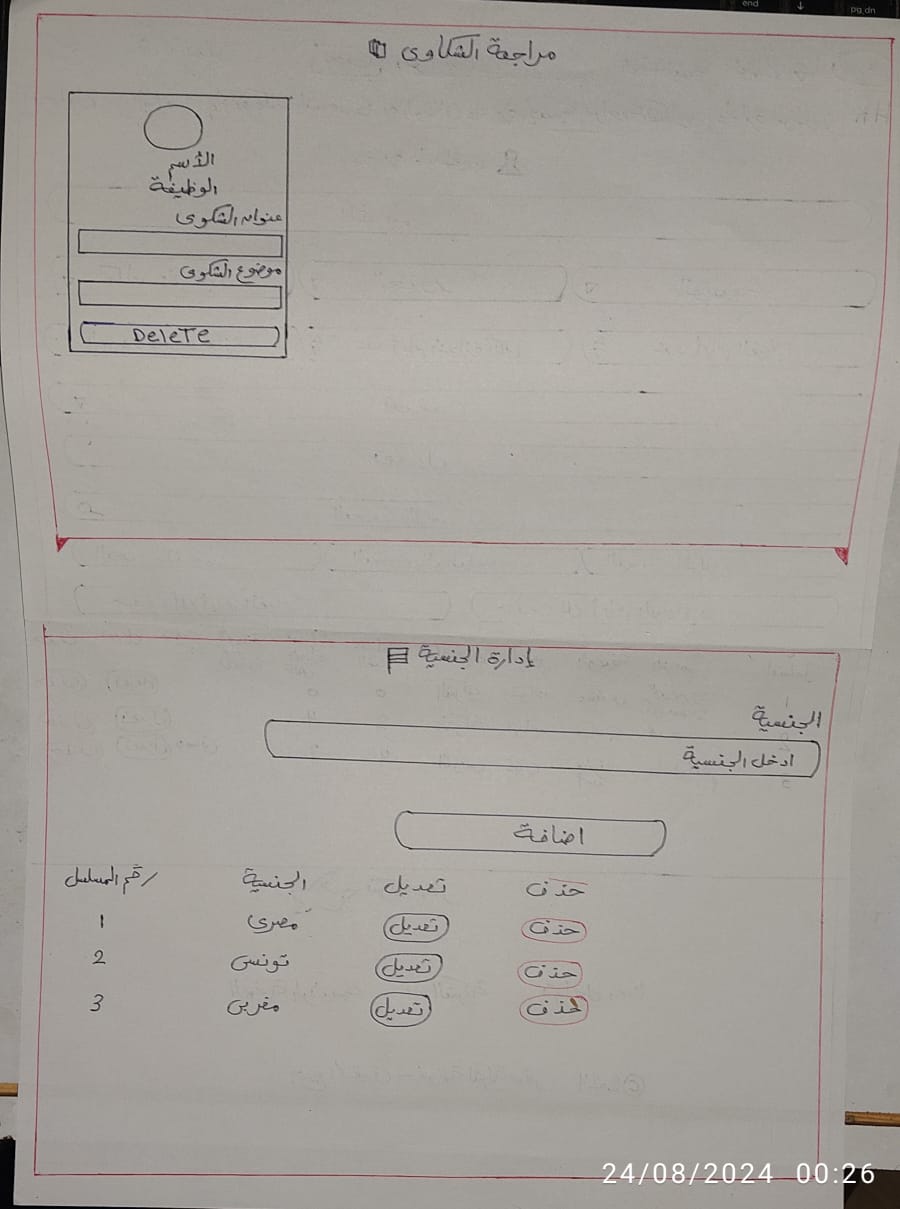 end ↓ pg dn
مراجعة الشكاوى
الأسم
الوظيفة
عنوان الشكوى
موضوع الشكوى
DeleTe
إدارة الجنسية
الجنسية
ادخل الجنسية
اضافة
رقم المسلسل الجنسية تعديل حذف
1 مصرى تعديل حذف
2 تونسى تعديل حذف
3 مغربى تعديل حذف
24/08/2024 00:26